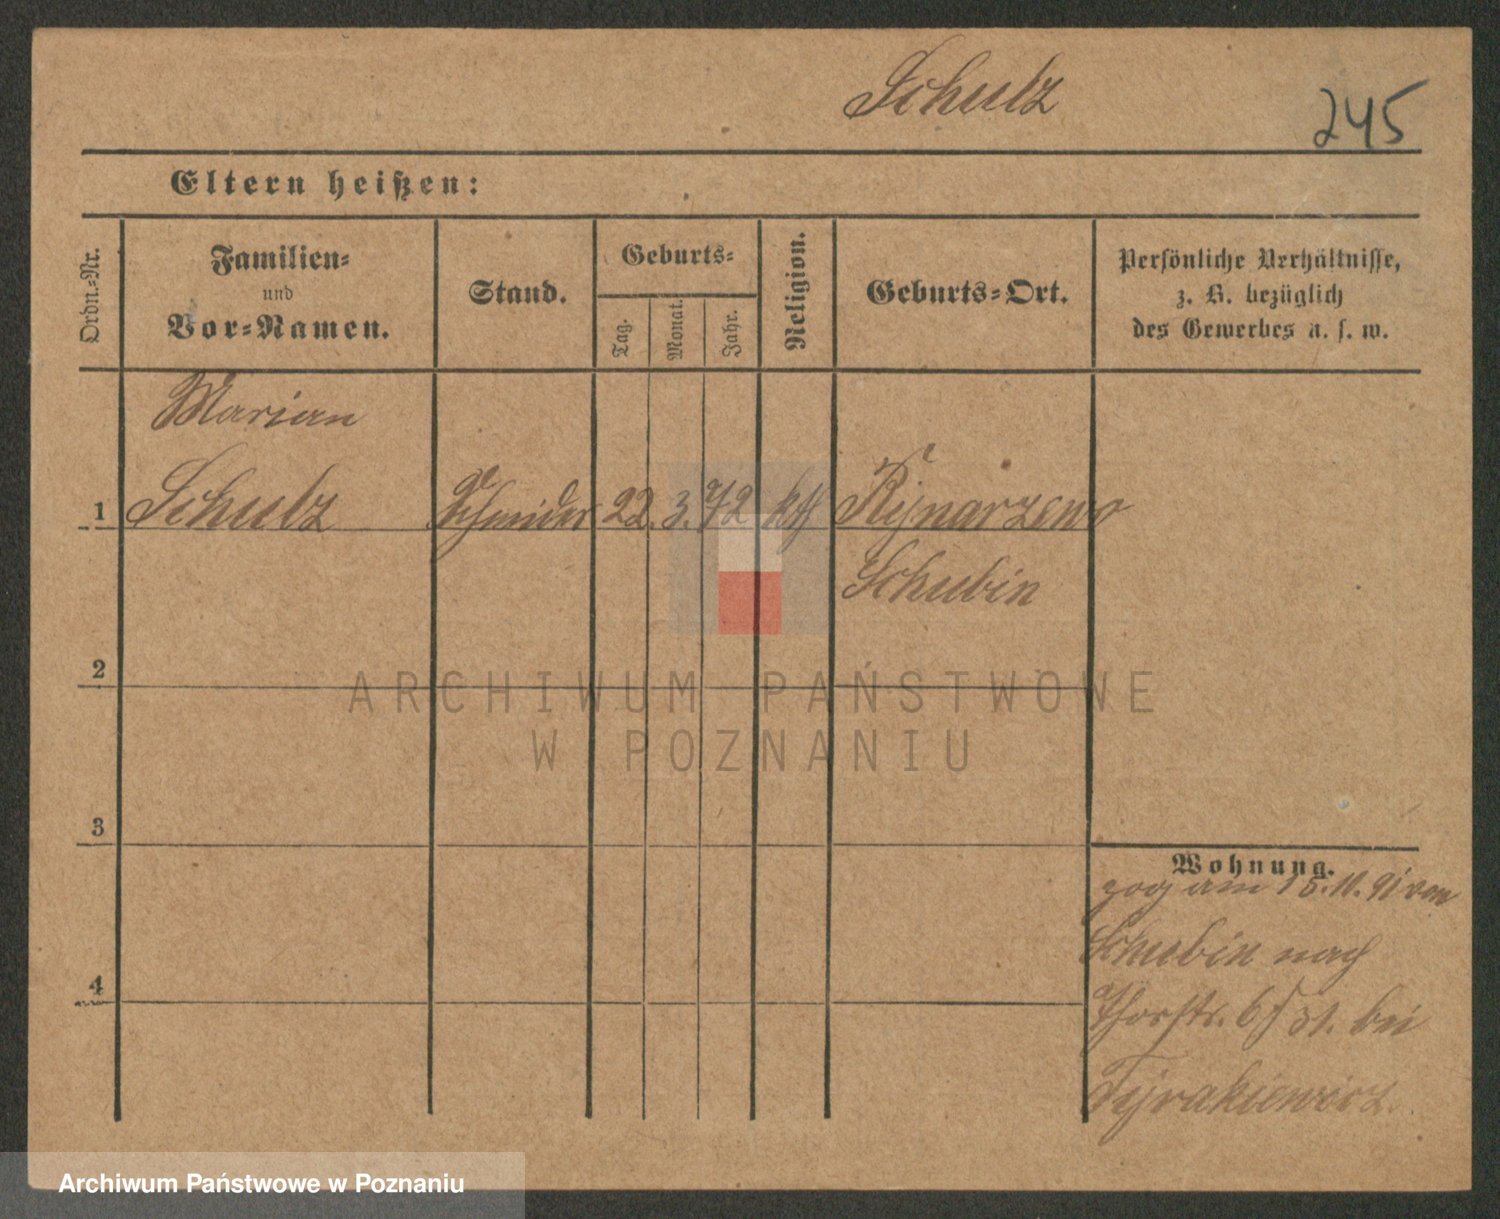 Schulz
245
Eltern heißen:
Ordn.-Nr.
Familien-
und
Vor-Namen.
Stand.
Geburts-
Tag.
Monat.
Jahr.
Religion.
Geburts-Ort.
Persönliche Verhältnisse,
z. B. bezüglich
des Gewerbes u. s. w.
Marian
1 Schulz Schneider 22. 3. 72 kth Rynarzewo
Schubin
2
ARCHIWUM PAŃSTWOWE
W POZNANIU
3
Wohnung.
zog am 15. 10. 91 von
Schubin nach
Thorstr. 6 31. bei
Tyrakiewicz.
4
Archiwum Państwowe w Poznaniu